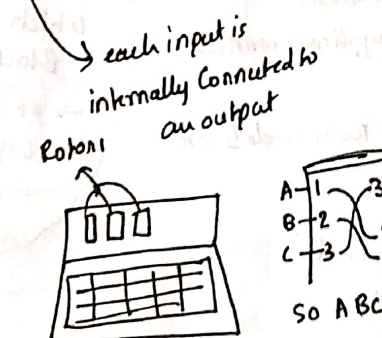 each input is
internally Connuted to
an output
Rotors
A 1 3
B 2
C 3
So ABC